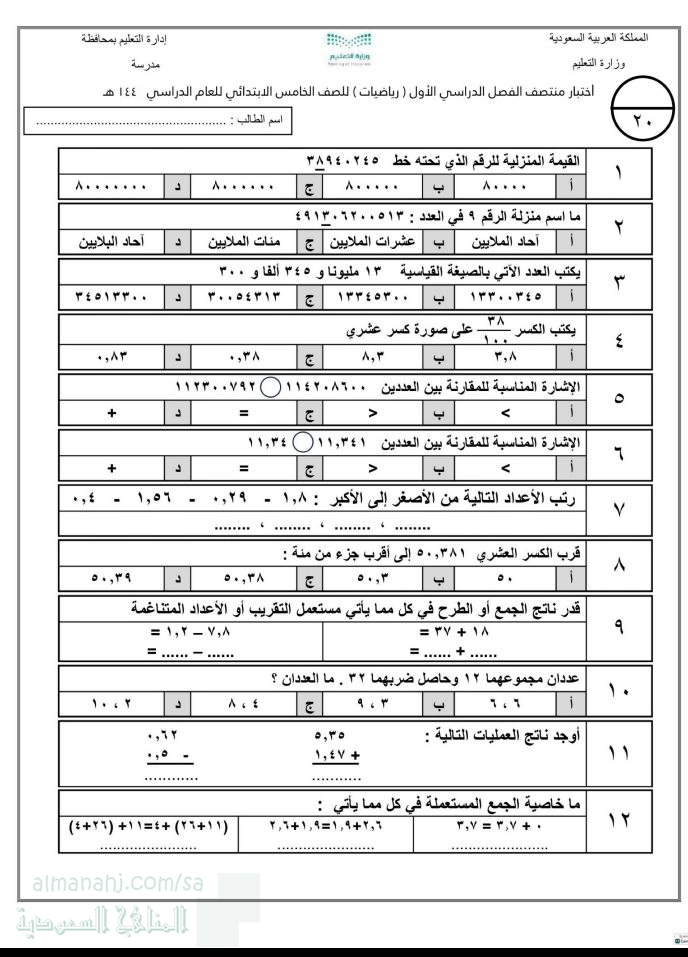 المملكة العربية السعودية
وزارة التعليم
وزارة التعليم
Ministry of Education
إدارة التعليم بمحافظة
مدرسة
أختبار منتصف الفصل الدراسي الأول ( رياضيات ) للصف الخامس الابتدائي للعام الدراسي ١٤٤ هـ
٢٠
اسم الطالب : ......................................................
١ القيمة المنزلية للرقم الذي تحته خط ٣٨٩٤٠٢٤٥
أ ٨٠٠٠٠ ب ٨٠٠٠٠٠ ج ٨٠٠٠٠٠٠ د ٨٠٠٠٠٠٠٠
٢ ما اسم منزلة الرقم ٩ في العدد : ٤٩١٣٠٦٢٠٠٥١٣
أ آحاد الملايين ب عشرات الملايين ج مئات الملايين د آحاد البلايين
٣ يكتب العدد الآتي بالصيغة القياسية ١٣ مليونا و ٣٤٥ ألفا و ٣٠٠
أ ١٣٣٠٠٣٤٥ ب ١٣٣٤٥٣٠٠ ج ٣٠٠٥٤٣١٣ د ٣٤٥١٣٣٠٠
٤ يكتب الكسر ٣٨/١٠٠ على صورة كسر عشري
أ ٣,٨ ب ٨,٣ ج ٠,٣٨ د ٠,٨٣
٥ الإشارة المناسبة للمقارنة بين العددين ١١٤٢٠٨٦٠٠ ◯ ١١٢٣٠٠٧٩٢
أ > ب < ج = د +
٦ الإشارة المناسبة للمقارنة بين العددين ١١,٣٤١ ◯ ١١,٣٤
أ < ب > ج = د +
٧ رتب الأعداد التالية من الأصغر إلى الأكبر : ١,٨ - ٠,٢٩ - ١,٥٦ - ٠,٤
........ ، ........ ، ........ ، ........
٨ قرب الكسر العشري ٥٠,٣٨١ إلى أقرب جزء من مئة :
أ ٥٠ ب ٥٠,٣ ج ٥٠,٣٨ د ٥٠,٣٩
٩ قدر ناتج الجمع أو الطرح في كل مما يأتي مستعمل التقريب أو الأعداد المتناغمة
١٨ + ٣٧ = ٧,٨ – ١,٢ =
...... + ...... = ...... – ...... =
١٠ عددان مجموعهما ١٢ وحاصل ضربهما ٣٢ . ما العددان ؟
أ ٦ ، ٦ ب ٣ ، ٩ ج ٤ ، ٨ د ٢ ، ١٠
١١ أوجد ناتج العمليات التالية : ٥,٣٥ ٠,٦٢
+ ١,٤٧ - ٠,٥
........... ............
١٢ ما خاصية الجمع المستعملة في كل مما يأتي :
٠ + ٣,٧ = ٣,٧ ٢,٦+١,٩=١,٩+٢,٦ (١١+٢٦) +٤=١١+ (٢٦+٤)
....................... ....................... .......................
almanahj.com/sa
المناهج السعودية